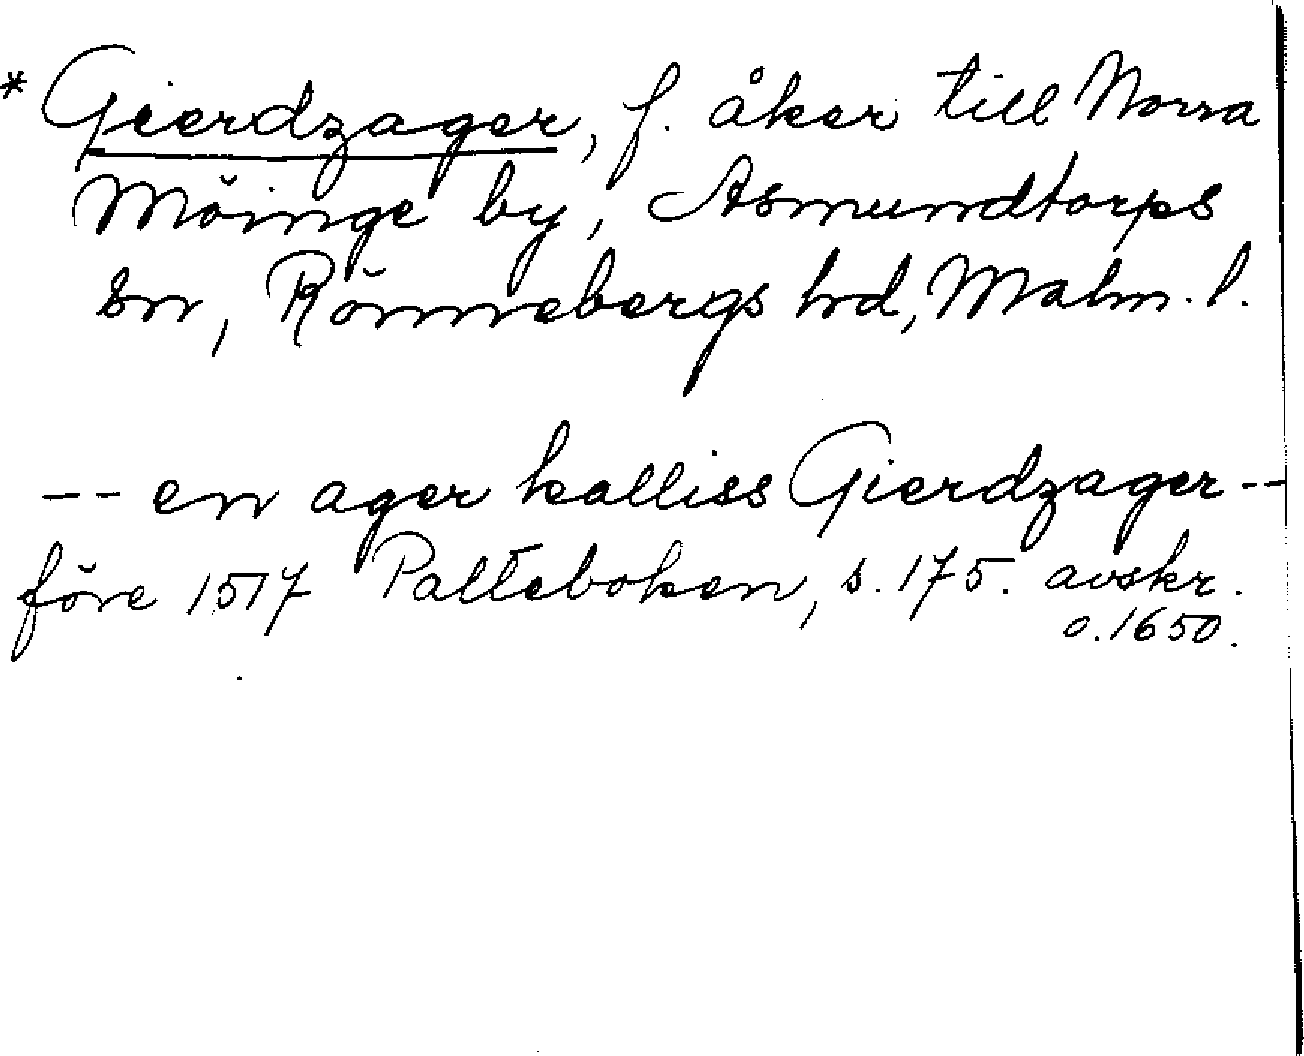 * Gierdzager, f. åker till Norra
Möinge by, Asmundtorps
sn, Rönnebergs hd, Malm. l.
-- en ager kalliss Gierdzager --
före 1517 Palteboken, s. 175. avskr.
o. 1650.